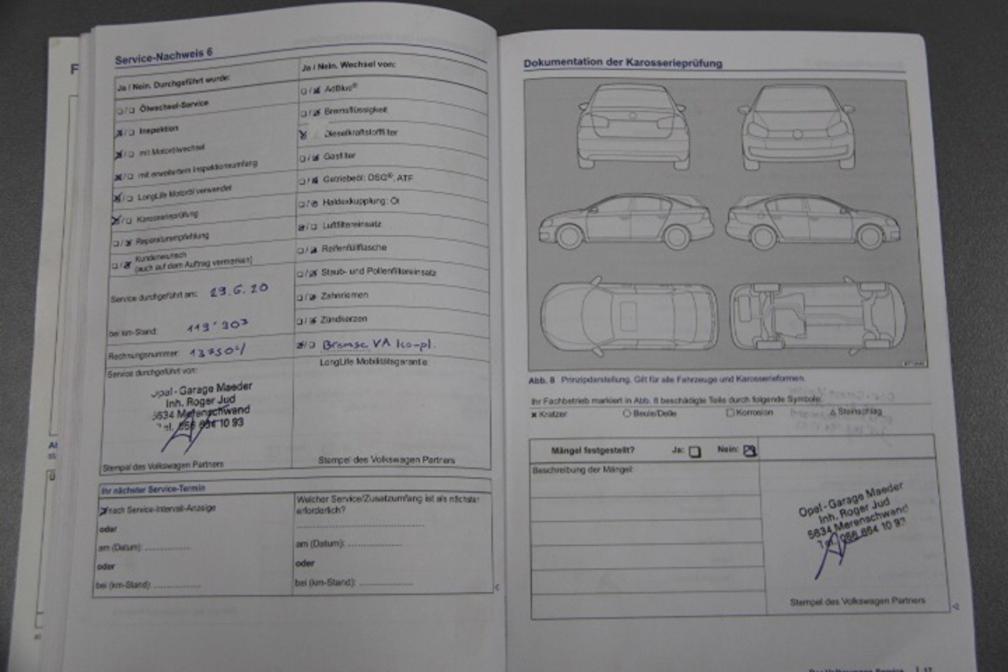 Service-Nachweis 6
Ja / Nein. Durchgeführt wurde:
Ölwechsel-Service
Inspektion
mit Motorölwechsel
mit erweitertem Inspektionsumfang
LongLife Motoröl verwendet
Karosserieprüfung
Reparaturempfehlung
Kundenwunsch
(auch auf dem Auftrag vermerken)
Service durchgeführt am: 29.6.20
bei km-Stand: 119'303
Rechnungsnummer:
Service durchgeführt von:
Opel-Garage Maeder
Inh. Roger Jud
5634 Merenschwand
Tel. 056 664 10 93
Stempel des Volkswagen Partners
Ja / Nein. Wechsel von:
AdBlue®
Bremsflüssigkeit
Dieselkraftstofffilter
Gasfilter
Getriebeöl: DSG®, ATF
Haldexkupplung: Öl
Luftfiltereinsatz
Reifenfüllflasche
Staub- und Pollenfiltereinsatz
Zahnriemen
Zündkerzen
Bremse VA kompl.
LongLife Mobilitätsgarantie
Stempel des Volkswagen Partners
Ihr nächster Service-Termin
nach Service-Intervall-Anzeige
oder
am (Datum): ..............
oder
bei (km-Stand): ..............
Welcher Service/Zusatzumfang ist als nächster
erforderlich?
am (Datum): ..............
oder
bei (km-Stand): ..............
Dokumentation der Karosserieprüfung
Abb. 8 Prinzipdarstellung. Gilt für alle Fahrzeuge und Karosserieformen.
Ihr Fachbetrieb markiert in Abb. 8 beschädigte Teile durch folgende Symbole:
× Kratzer ○ Beule/Delle □ Korrosion △ Steinschlag
Mängel festgestellt? Ja: Nein:
Beschreibung der Mängel:
Opel-Garage Maeder
Inh. Roger Jud
5634 Merenschwand
Tel. 056 664 10 93
Stempel des Volkswagen Partners